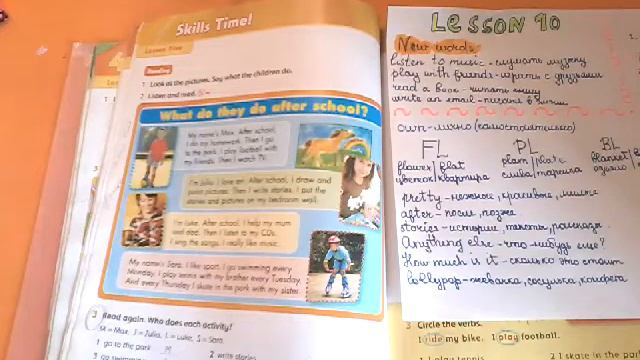 Skills Time!
Lesson Five
Reading
1 Look at the pictures. Say what the children do.
2 Listen and read.
What do they do after school?
My name's Max. After school,
I do my homework. Then I go
to the park. I play football with
my friends. Then I watch TV.
I'm Julia. I love art. After school, I draw and
paint pictures. Then I write stories. I put the
stories and pictures on my bedroom wall.
I'm Luke. After school, I help my mum
and dad. Then I listen to my CDs.
I sing the songs. I really like music.
My name's Sara. I like sport. I go swimming every
Monday. I play tennis with my brother every Tuesday.
And every Thursday I skate in the park with my sister.
3 Read again. Who does each activity?
M = Max, J = Julia, L = Luke, S = Sara.
1 go to the park M
2 write stories
3 go swimming
LESSON 10
New words
listen to music - слушать музыку
play with friends - играть с друзьями
read a book - читать книгу
write an email -
own - лично (самостоятельно)
FL PL BL
flower/flat plum/plate blanket
цветок/квартира слива/тарелка одеяло
pretty - нежное, красивое,
after - после, позже
stories - истории,
Anything else - что-нибудь еще?
How much is it - сколько это стоит
Lollypop - сосулька, конфета
3 Circle the verbs.
I ride my bike. I play football.
1 I play tennis.
2 I skate in the park